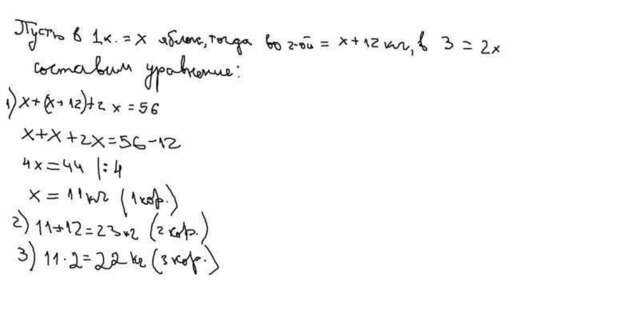 Пусть в 1к. = x яблок, тогда во 2-ой = x+12 кг, в 3 = 2x
составим уравнение:
1) x+(x+12)+2x=56
x+x+2x=56-12
4x=44 |:4
x = 11кг (1кор.)
2) 11+12=23кг (2 кор.)
3) 11·2=22 кг (3 кор.)